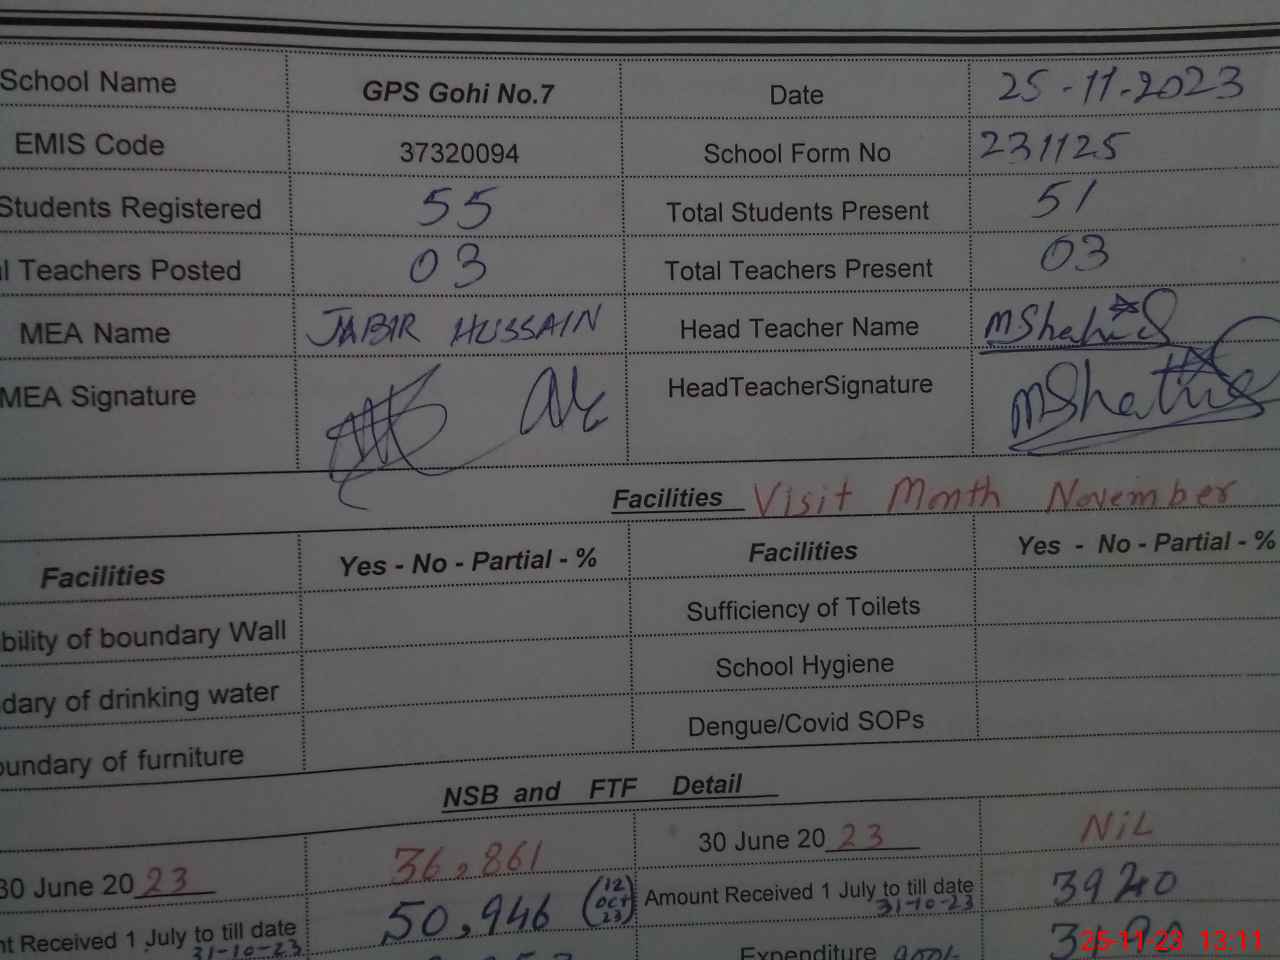 School Name GPS Gohi No.7 Date 25-11-2023
EMIS Code 37320094 School Form No 231125
Students Registered 55 Total Students Present 51
Teachers Posted 03 Total Teachers Present 03
MEA Name JABIR HUSSAIN Head Teacher Name MShahid
MEA Signature HeadTeacherSignature
Facilities Visit Month November
Facilities Yes - No - Partial - % Facilities Yes - No - Partial - %
bility of boundary Wall Sufficiency of Toilets
dary of drinking water School Hygiene
oundary of furniture Dengue/Covid SOPs
NSB and FTF Detail
30 June 2023 36,861 30 June 2023 NiL
nt Received 1 July to till date 31-10-23 50,946 (12 OCT 23) Amount Received 1 July to till date 31-10-23 3920
Expenditure
25-11-23 13:11